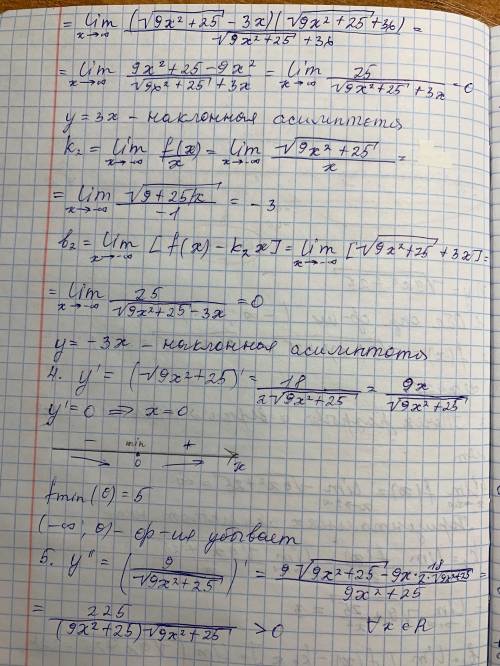 = lim x→∞ (√(9x²+25) - 3x)(√(9x²+25) + 3x) / (√(9x²+25) + 3x) =
= lim x→∞ (9x²+25-9x²) / (√(9x²+25) + 3x) = lim x→∞ 25 / (√(9x²+25) + 3x) = 0
y = 3x - наклонная асимптота
k₂ = lim x→-∞ f(x)/x = lim x→-∞ √(9x²+25) / x =
= lim x→-∞ √(9+25/x) / -1 = -3
b₂ = lim x→-∞ [f(x) - k₂x] = lim x→-∞ [√(9x²+25) + 3x] =
= lim x→-∞ 25 / (√(9x²+25) - 3x) = 0
y = -3x - наклонная асимптота
4. y' = (√(9x²+25))' = 18 / (2√(9x²+25)) = 9x / √(9x²+25)
y' = 0 ⇒ x = 0
- min +
0 x
fmin(0) = 5
(-∞, 0) - ф-ия убывает
5. y'' = (9 / √(9x²+25))' = (9√(9x²+25) - 9x · 18 / (2·√(9x²+25))) / (9x²+25) =
= 225 / ((9x²+25)√(9x²+25)) > 0 ∀x∈R